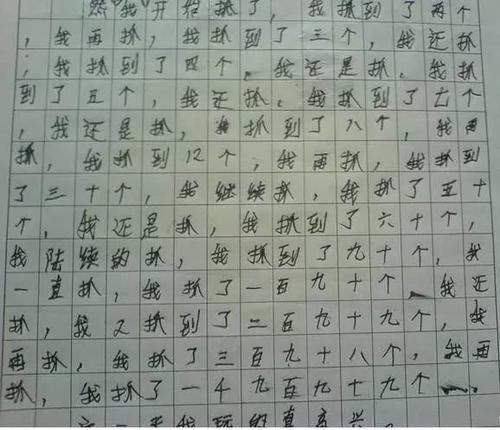 然我开始抓了，我抓到了两个
，我再抓，我抓到了三个，我还抓
，我抓到了四个，我还是抓，我抓
到了五个，我还抓，我抓到了七个
，我还是抓，我抓到了八个，我再
抓，我抓到12个，我再抓，我抓到
了三十个，我继续抓，我抓了五十
个，我还是抓，我抓到了六十个，
我陆续的抓，我抓到了九十个，我
一直抓，我抓了一百九十个，我还
抓，我又抓到了二百九十九个，我
再抓，我抓了三百九十八个，我再
抓，我抓了一千九百九十九个
我玩的真高兴